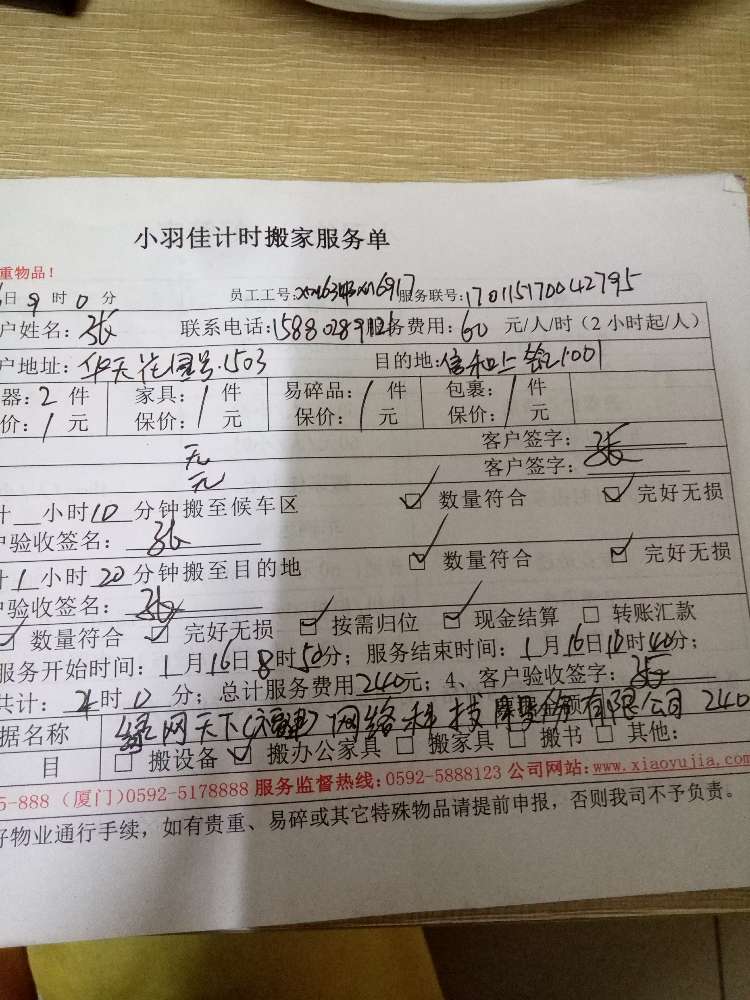 小羽佳计时搬家服务单
重物品！
日9时0分 员工工号： 服务联号：170115170042795
户姓名：张 联系电话：1588028 服务费用：60元/人/时（2小时起/人）
户地址：华天花园 1503 目的地：信和 1001
器：2件 家具：1件 易碎品：1件 包裹：1件
价：1元 保价：1元 保价：1元 保价：1元
无 客户签字：张
无 客户签字：张
计 小时10分钟搬至候车区 数量符合 完好无损
户验收签名：张
计1小时20分钟搬至目的地 数量符合 完好无损
户验收签名：张
数量符合 完好无损 按需归位 现金结算 转账汇款
服务开始时间：1月16日8时50分；服务结束时间：1月16日 时40分；
共计： 时 分；总计服务费用2440元；4、客户验收签字：张
据名称 绿网天下（福建）网络科技股份有限公司 240
目 搬设备 搬办公家具 搬家具 搬书 其他：
5-888（厦门）0592-5178888 服务监督热线：0592-5888123 公司网站：www.xiaoyujia.com
好物业通行手续，如有贵重、易碎或其它特殊物品请提前申报，否则我司不予负责。